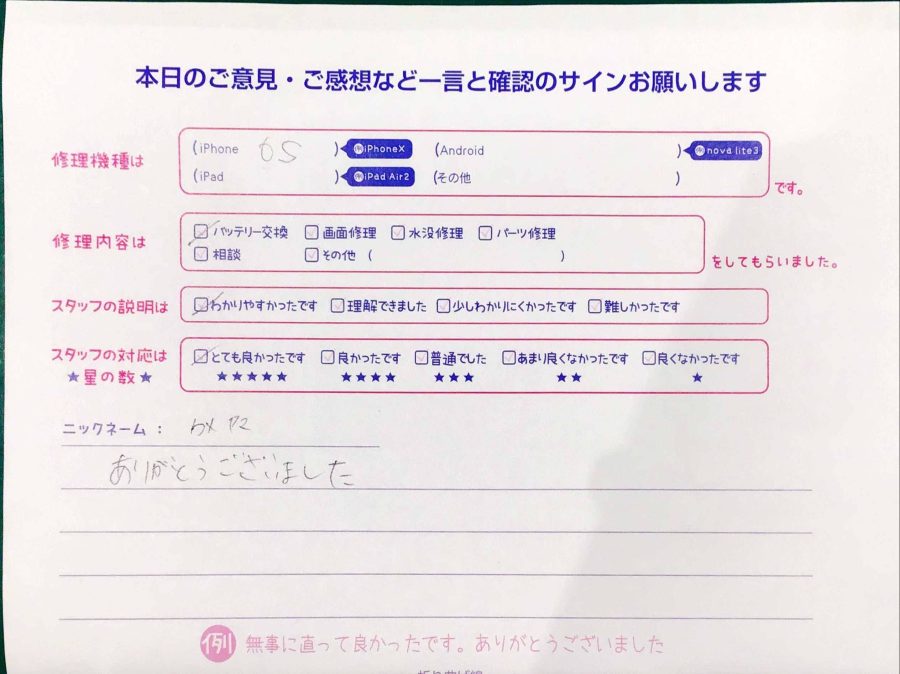 本日のご意見・ご感想など一言と確認のサインお願いします
修理機種は (iPhone 6S ) 例iPhoneX (Android ) 例nova lite3
(iPad ) 例iPad Air2 (その他 ) です。
修理内容は バッテリー交換 画面修理 水没修理 パーツ修理
相談 その他 ( ) をしてもらいました。
スタッフの説明は わかりやすかったです 理解できました 少しわかりにくかったです 難しかったです
スタッフの対応は とても良かったです 良かったです 普通でした あまり良くなかったです 良くなかったです
★星の数★ ★★★★★ ★★★★ ★★★ ★★ ★
ニックネーム：
ありがとうございました
例 無事に直って良かったです。ありがとうございました